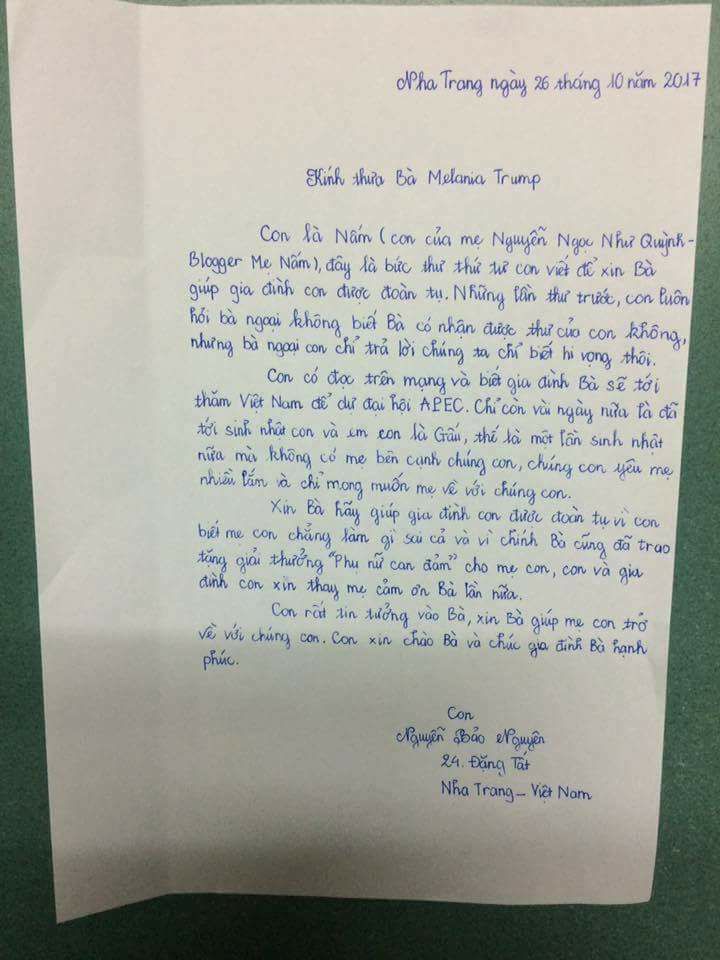 Nha Trang ngày 26 tháng 10 năm 2017
Kính thưa Bà Melania Trump
Con là Nấm (con của mẹ Nguyễn Ngọc Như Quỳnh-
Blogger Mẹ Nấm), đây là bức thư thứ tư con viết để xin Bà
giúp gia đình con được đoàn tụ. Những lần thư trước, con luôn
hỏi bà ngoại không biết Bà có nhận được thư của con không,
nhưng bà ngoại con chỉ trả lời chúng ta chỉ biết hi vọng thôi.
Con có đọc trên mạng và biết gia đình Bà sẽ tới
thăm Việt Nam để dự đại hội APEC. Chỉ còn vài ngày nữa là đã
tới sinh nhật con và em con là Gấu, thế là một lần sinh nhật
nữa mà không có mẹ bên cạnh chúng con, chúng con yêu mẹ
nhiều lắm và chỉ mong muốn mẹ về với chúng con.
Xin Bà hãy giúp gia đình con được đoàn tụ vì con
biết mẹ con chẳng làm gì sai cả và vì chính Bà cũng đã trao
tặng giải thưởng "Phụ nữ can đảm" cho mẹ con, con và gia
đình con xin thay mẹ cảm ơn Bà lần nữa.
Con rất tin tưởng vào Bà, xin Bà giúp mẹ con trở
về với chúng con. Con xin chào Bà và chúc gia đình Bà hạnh
phúc.
Con
Nguyễn Bảo Nguyên
24. Đặng Tất
Nha Trang - Việt Nam